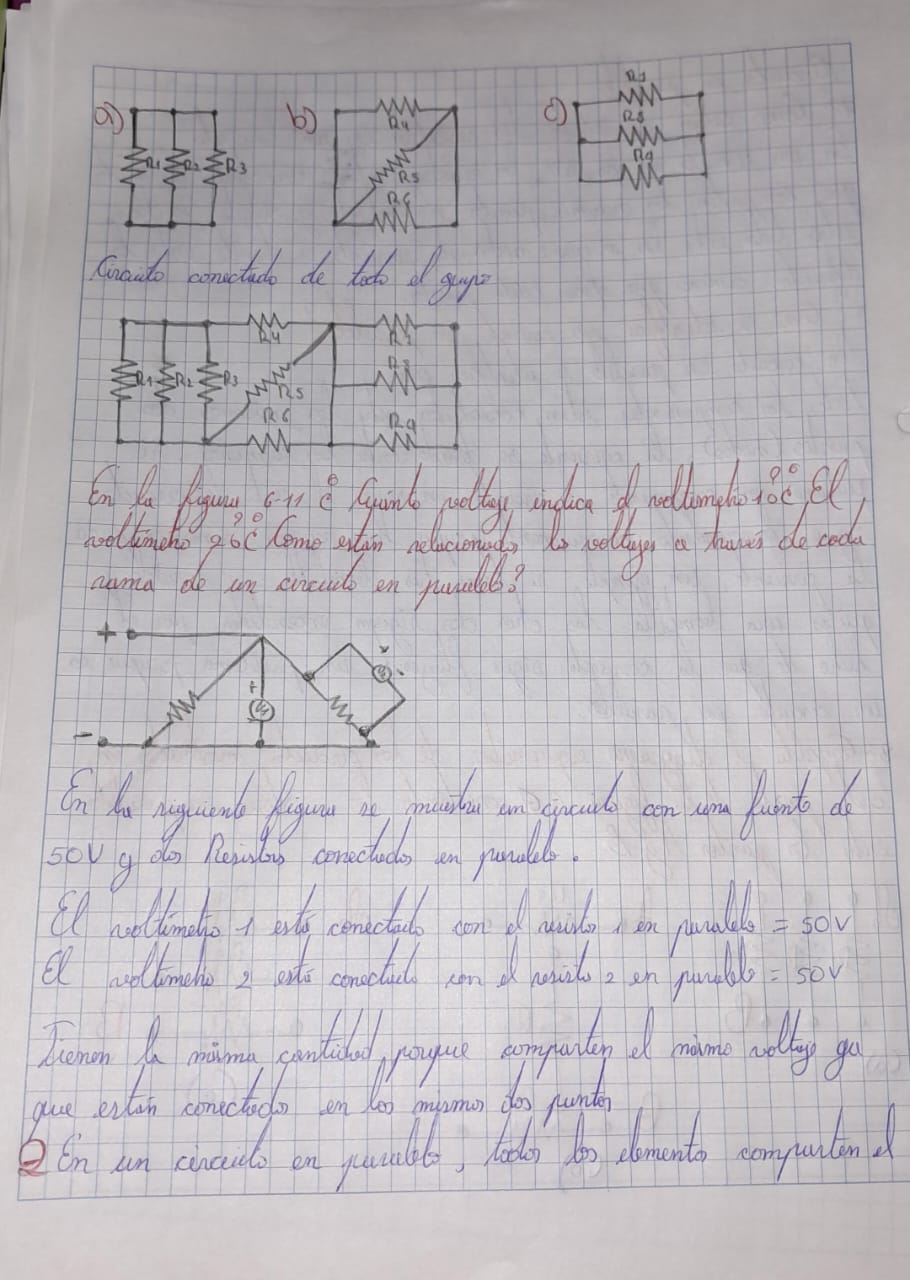 a) b) c)
R1 R2 R3 R4 R5 R6 R8 R9
Circuito conectado de todo el grupo
R4
R1 R2 R3 R5 R8
R6 R9
En la figura 6-11 ¿ Cuánto voltaje indica el voltimetro 1? ¿El
voltímetro 2? ¿ Como están relacionados los voltajes a través de cada
rama de un circuito en paralelo?
+
+
-
En la siguiente figura se muestra un circuito con una fuente de
50V y dos Resistores conectados en paralelo.
El voltímetro 1 está conectado con el resistor 1 en paralelo = 50V
El voltimetro 2 está conectado con el resistor 2 en paralelo = 50V
Tienen la misma cantidad, porque comparten el mismo voltaje ya
que están conectados en los mismos dos puntos
En un circuito en paralelo, todos los elementos comparten el